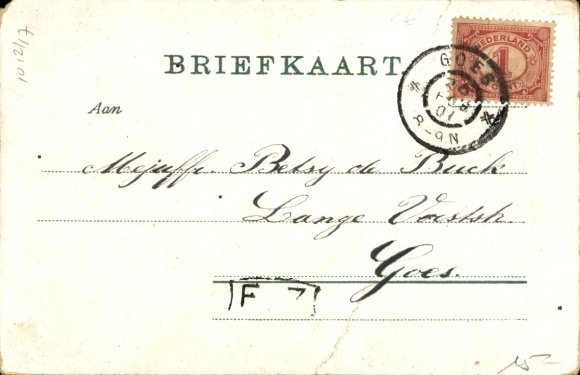 10/12/17
BRIEFKAART
NEDERLAND
1
CENT
GOES
8-9N
Aan
Mejuffr. Betsy de Buck
Lange Vorststr.
Goes.
F 7
15-